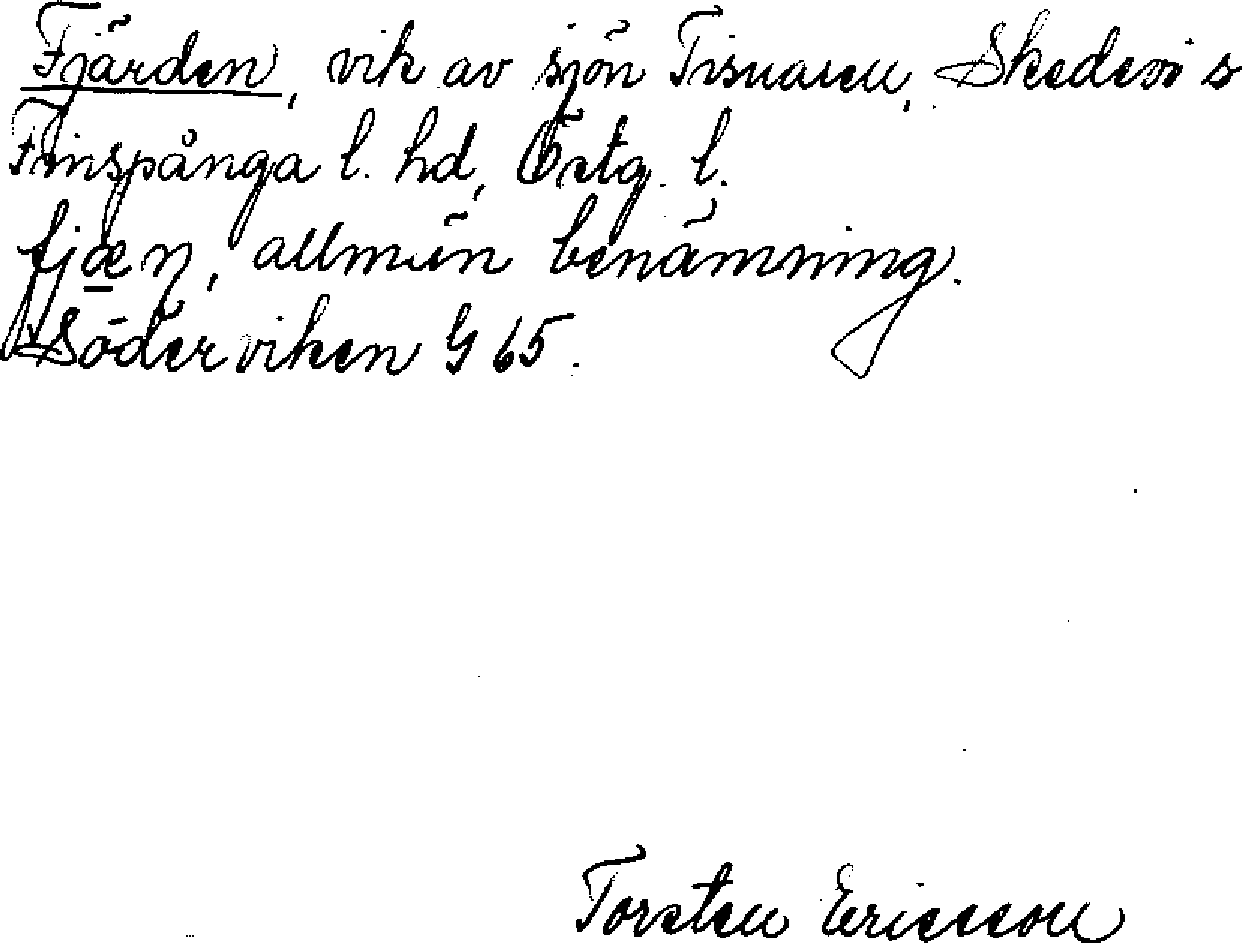 Fjärden, vik av sjön Tisnaren, Skedevi s
Finspånga l. hd, Östg. l.
fjæṇ, allmän benämning.
Söderviken G 65.
Torsten Ericsson